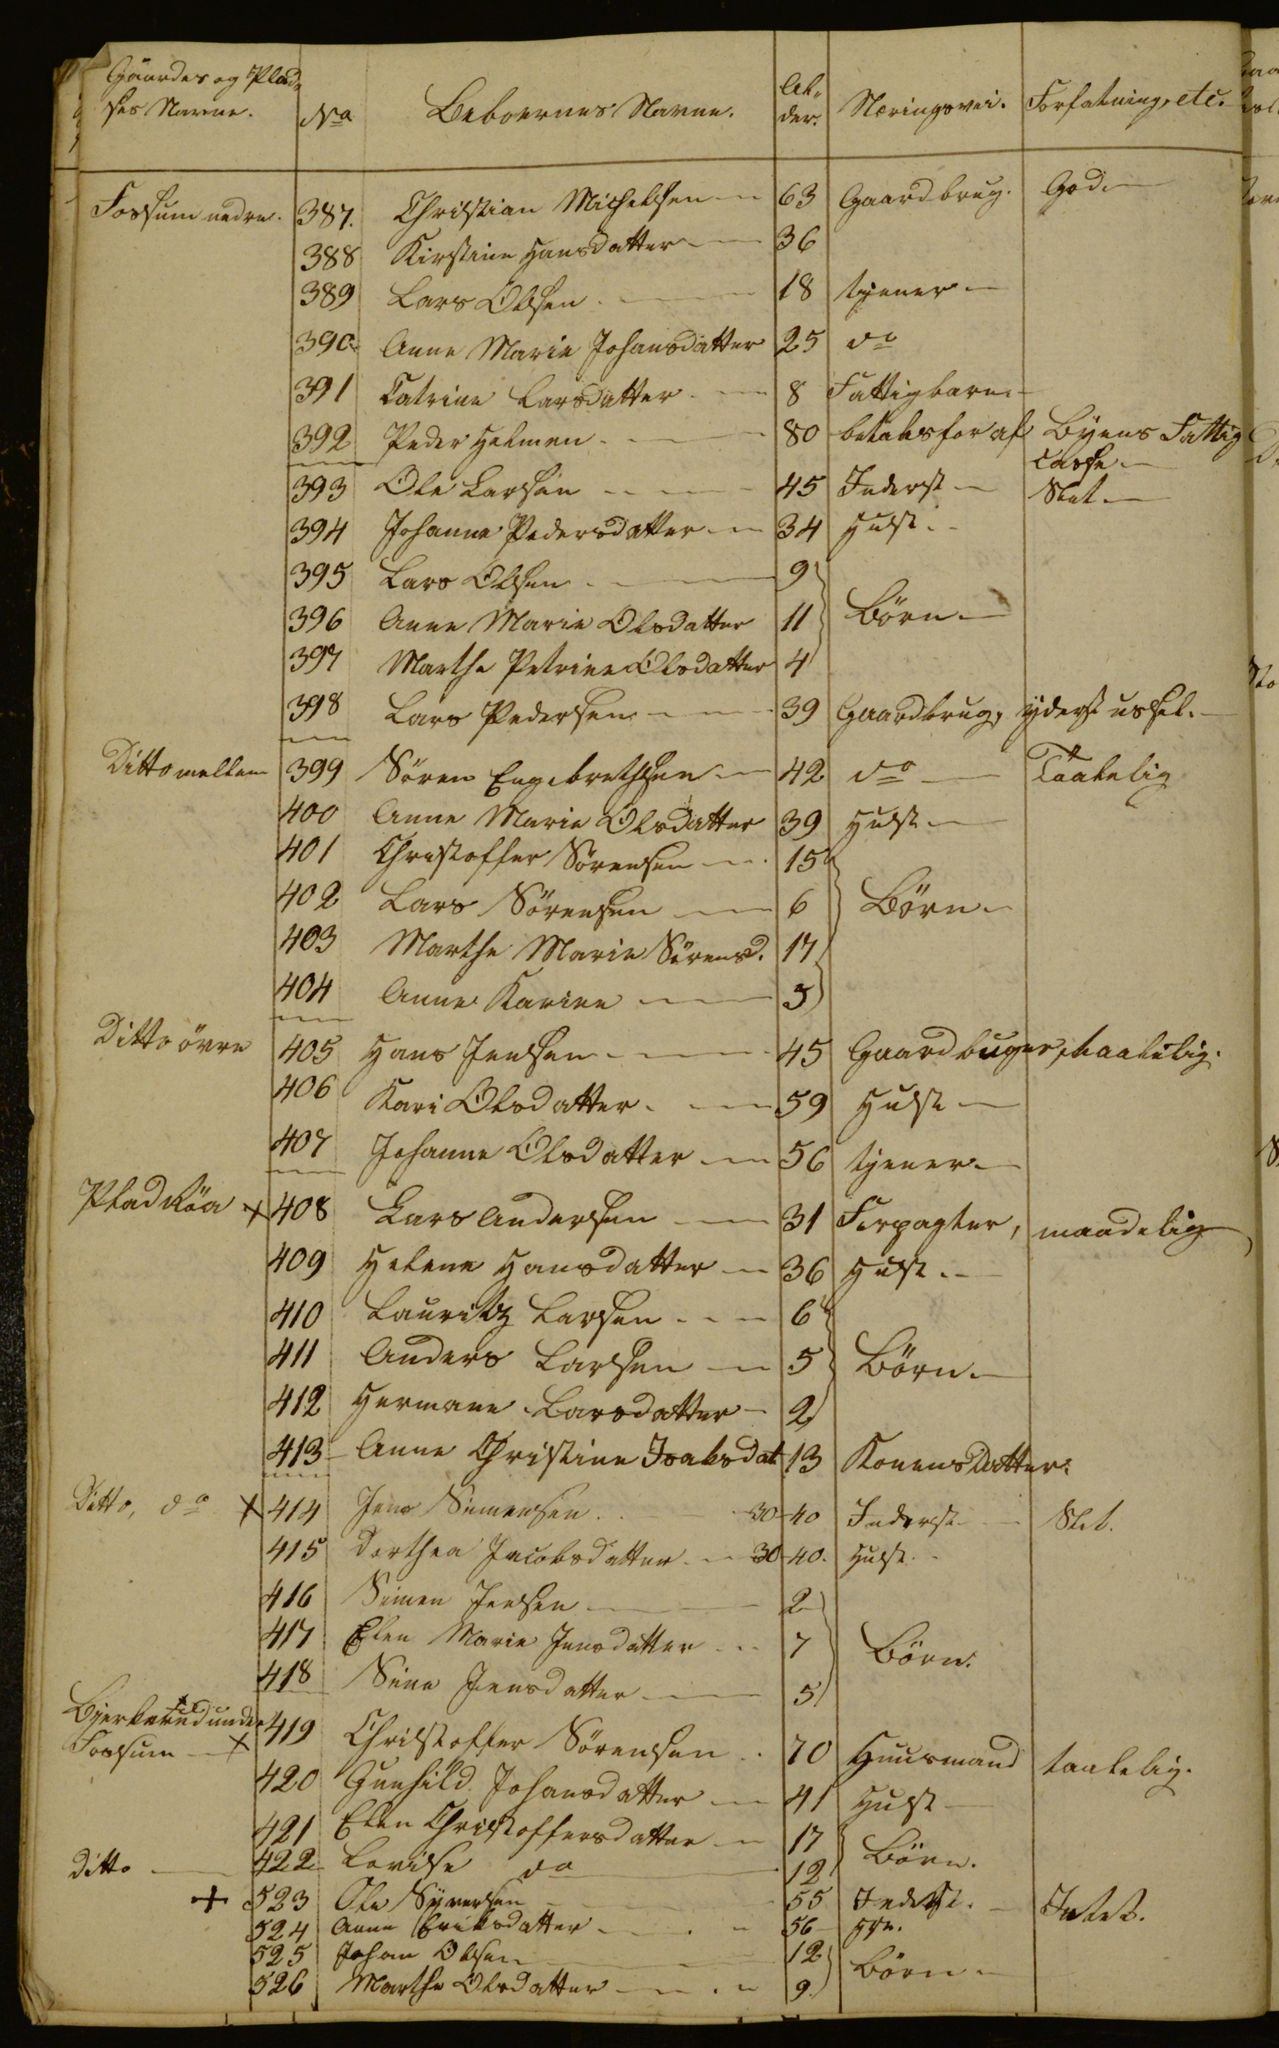 Gaardes og Plad-
ses Navne. No Beboernes Navne. Al-
der. Næringsvei. Forfatning, etc.
Fossum nedre. 387. Christian Michelsen 63 Gaardbrug. God.
388 Kirstine Hansdatter 36
389 Lars Olsen 18 tjener
390. Anne Marie Johansdatter 25 do
391 Catrine Larsdatter 8 Fattigbarn
392 Peder Holmen 80 betales for af Byens Fattig
Casse
393 Ole Larsen 45 Inderst Slet
394 Johanne Pedersdatter 34 Hust.
395 Lars Olsen 9
396 Anne Marie Olsdatter 11 Børn
397 Marthe Petrine Olsdatter 4
398 Lars Pedersen 39 Gaardbrug, yderst ussel.
Ditto mellem 399 Søren Engebrethsen 42 do Taalelig
400 Anne Marie Olsdatter 39 Hust
401 Christoffer Sørensen 15
402 Lars Sørensen 6 Børn
403 Marthe Marie Sørensd. 17
404 Anne Karine 3
Ditto øvre 405 Hans Jensen 45 Gaardbuger, taalelig.
406 Kari Olsdatter 59 Hust
407 Johanne Olsdatter 56 tjener
Plad Røa + 408 Lars Andersen 31 Forpagter, maadelig
409 Helene Hansdatter 36 Hust.
410 Lauritz Larsen 6
411 Anders Larsen 5 Børn
412 Hermane Larsdatter 2
413 Anne Christine Isaksdat 13 Konens Datter.
Ditto, do + 414 Jens Simensen 30 40 Inderst Slet.
415 Dorthea Jacobsdatter 30 40. Hust.
416 Simen Jensen 2
417 Elen Marie Jensdatter 7 Børn.
418 Sine Jensdatter 5
Bjerkerud under 419 Christoffer Sørensen 70 Huusmand taalelig.
Fossum +
420 Gunhild Johansdatter 41 Hust
421 Elen Christoffersdatter 17
422 Lovise do 12 Børn.
Ditto
+ 523 Ole Syversen 55 Inderst. Intet.
524 Anne Eriksdatter 56
525 Johan Olsen 12
526 Marthe Olsdatter 9 Børn